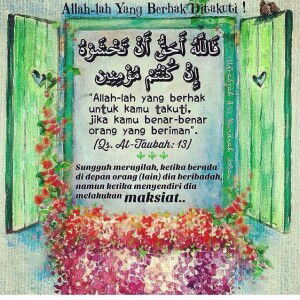 Allah-lah Yang Berhak Ditakuti !
فَاللَّهُ أَحَقُّ أَنْ تَخْشَوْهُ
إِنْ كُنْتُمْ مُؤْمِنِينَ
"Allah-lah yang berhak
untuk kamu takuti,
jika kamu benar-benar
orang yang beriman".
[Qs. At-Taubah: 13]
Sungguh merugilah, ketika berada
di depan orang (lain) dia beribadah,
namun ketika mengendiri dia
melakukan maksiat..